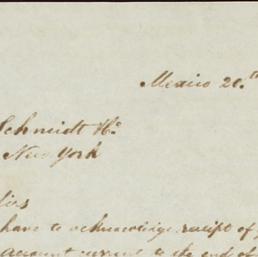 Mexico 20.th
Schmidt Ho
New York
Sirs
have to acknowledge receipt of
account current to the end of